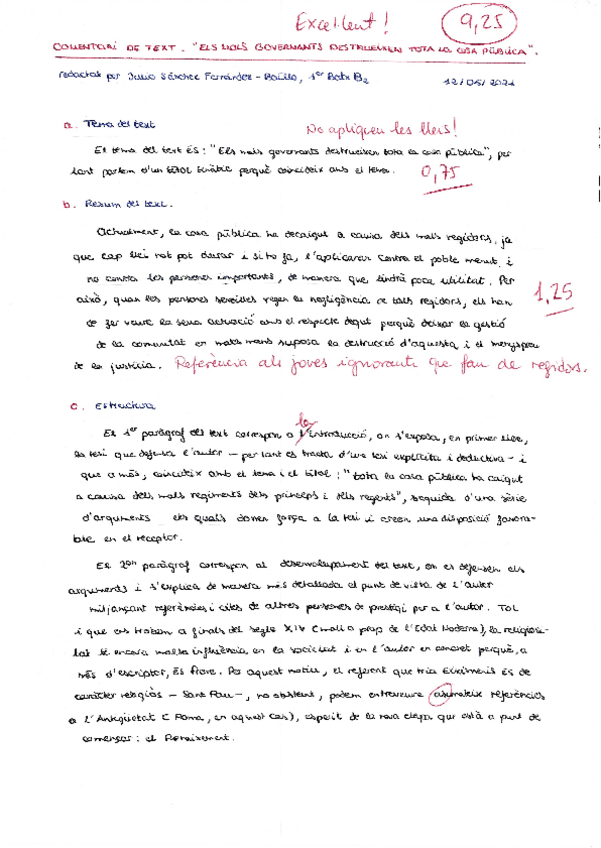 Excel·lent! 9,25
COMENTARI DE TEXT. "ELS MALS GOVERNANTS DESTRUEIXEN TOTA LA COSA PÚBLICA".
redactat per Junio Sánchez Ferrández-Baíllo, 1er Batx B2 12/05/2021
a. Tema del text
No apliquen les lleis!
El tema del text és: "Els mals governants destrueixen tota la cosa pública", per
tant parlem d'un títol temàtic perquè coincideix amb el tema.
0,75
b. Resum del text.
Actualment, la cosa pública ha decaigut a causa dels mals regidors, ja
que cap llei no pot durar i si ho fa, l'aplicaran contra el poble menut i
no contra les persones importants, de manera que tindrà poca utilitat. Per
això, quan les persones vegen la negligència de tals regidors, els han
1,25
de fer veure la seua actuació amb el respecte degut perquè deixar la gestió
de la comunitat en males mans suposa la destrucció d'aquesta i el menyspreu
de la justícia. Referència als joves ignorants que fan de regidors.
c. Estructura
la
El 1er paràgraf del text correspon a l'introducció, on s'exposa, en primer lloc,
la tesi que defensa l'autor - per tant es tracta d'una tesi explícita i deductiva - i
que a més, coincideix amb el tema i el títol: "tota la cosa pública ha caigut
a causa dels mals regiments dels prínceps i dels regents", seguida d'una sèrie
d'arguments els quals donen força a la tesi i creen una disposició favora-
ble en el receptor.
El 2on paràgraf correspon al desenvolupament del text, on es defensen els
arguments i s'explica de manera més detallada el punt de vista de l'autor
mitjançant referències i cites de altres persones de prestigi per a l'autor. Tot
i que ens trobem a finals del segle XIV (molt a prop de l'Edat Moderna), la religiosi-
tat té encara molta influència en la societat i en l'autor en concret perquè, a
més d'escriptor, és frare. Per aquest motiu, el referent que tria Eiximenis és de
caràcter religiós - Sant Pau -, no obstant, podem entreveure així mateix referències
a l'Antiguitat (Roma, en aquest cas), esperit de la nova etapa que està a punt de
començar: el Renaixement.